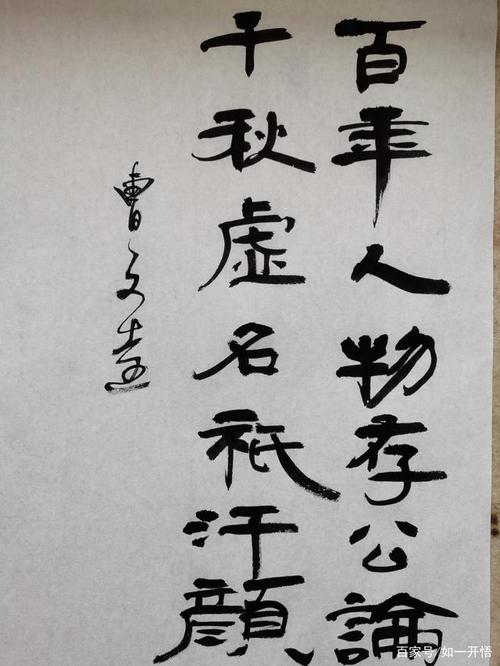 百年人物存公論
千秋虛名祇汗顔
曹文
百家号/如一开悟